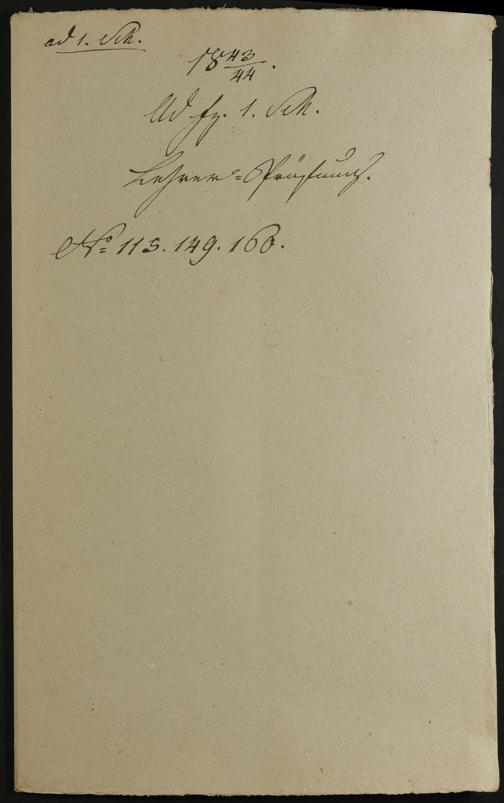 ad 1. Sch.
18 43/44.
Ad fz. 1. Sch.
Lehrer-Prüfung.
No 115. 149. 160.